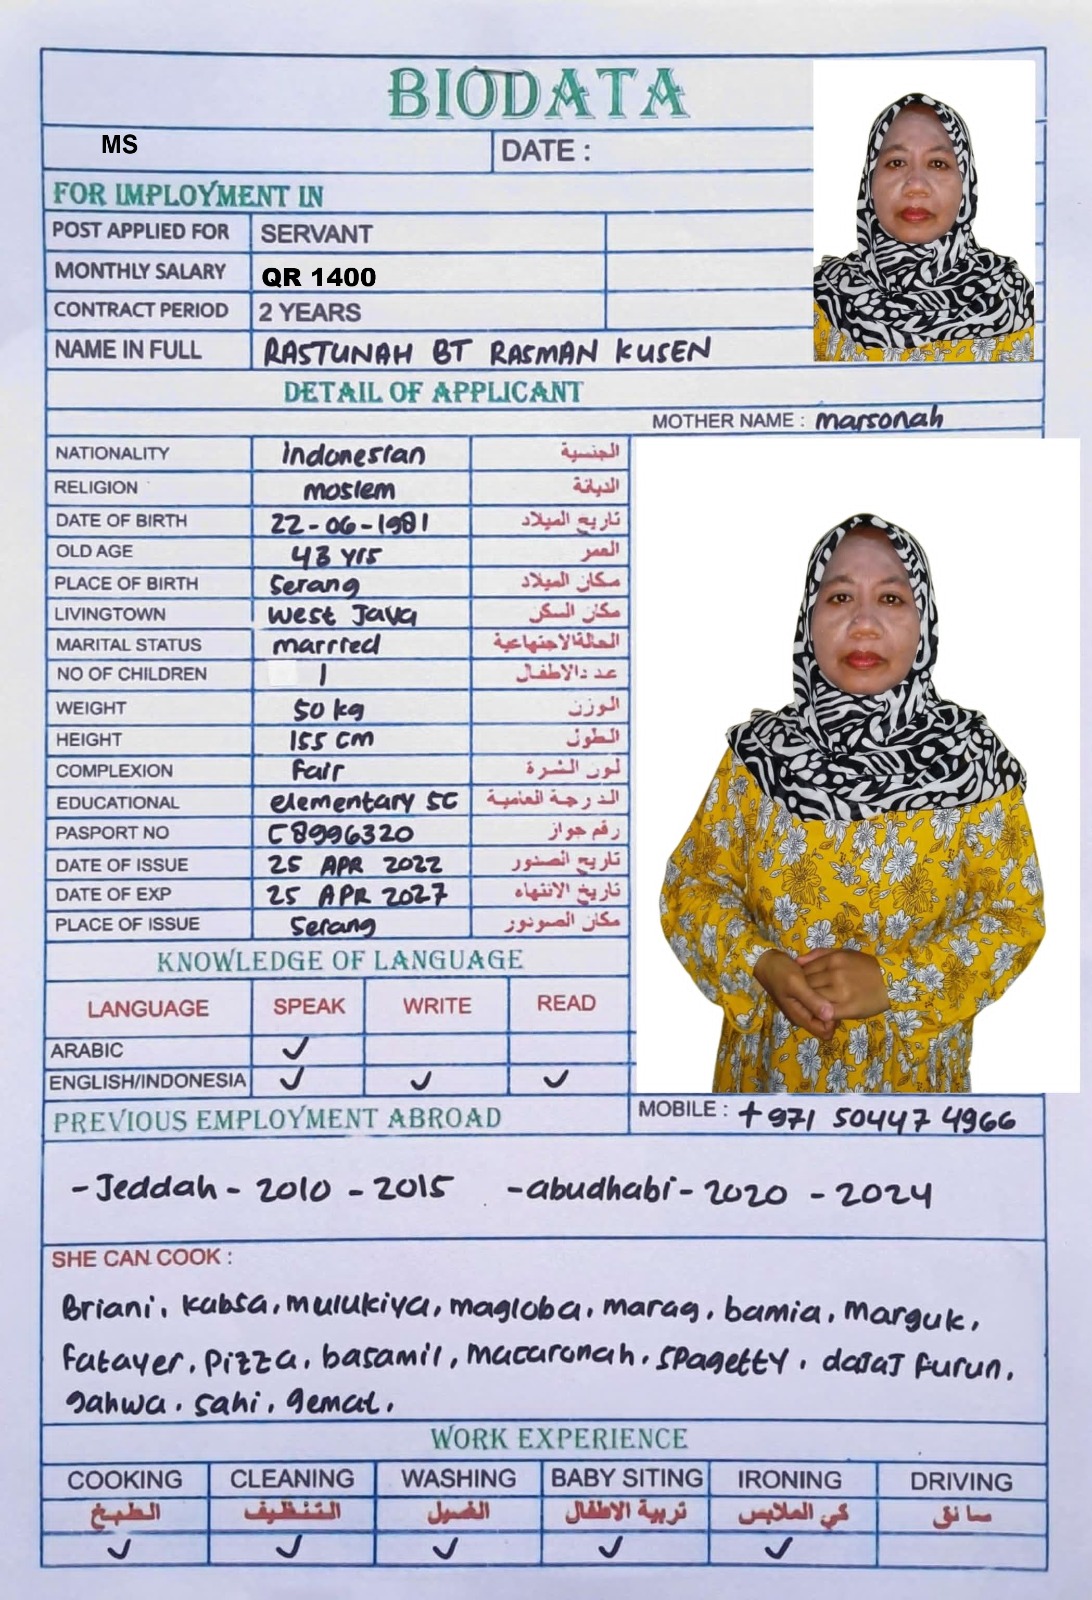 BIODATA
MS
DATE :
FOR IMPLOYMENT IN
POST APPLIED FOR SERVANT
MONTHLY SALARY QR 1400
CONTRACT PERIOD 2 YEARS
NAME IN FULL RASTUNAH BT RASMAN KUSEN
DETAIL OF APPLICANT
MOTHER NAME : marsonah
NATIONALITY Indonesian الجنسية
RELIGION moslem الديانة
DATE OF BIRTH 22-06-1981 تاريع الميلاد
OLD AGE 43 yrs العمر
PLACE OF BIRTH Serang مكان الميلاد
LIVINGTOWN West Java مكان السكن
MARITAL STATUS married الحالةالاجتهاعية
NO OF CHILDREN 1 عد دالاطفال
WEIGHT 50 kg الوزن
HEIGHT 155 cm الطول
COMPLEXION Fair لون الشرة
EDUCATIONAL elementary SC الدرجة العامية
PASPORT NO C8996320 رقم جواز
DATE OF ISSUE 25 APR 2022 تاريح الصنور
DATE OF EXP 25 APR 2027 تاريخ الانتهاء
PLACE OF ISSUE Serang مكان الصونور
KNOWLEDGE OF LANGUAGE
LANGUAGE SPEAK WRITE READ
ARABIC ✓
ENGLISH/INDONESIA ✓ ✓ ✓
PREVIOUS EMPLOYMENT ABROAD
MOBILE : +971 50447 4966
-Jeddah - 2010 - 2015 -abudhabi - 2020 - 2024
SHE CAN COOK :
Briani, kabsa, mulukiya, magloba, marag, bamia, marguk,
fatayer, pizza, basamil, macaronah, spagetty, dajaj furun,
gahwa, sahi, gemat,
WORK EXPERIENCE
COOKING CLEANING WASHING BABY SITING IRONING DRIVING
الطبخ التنظيف الغسيل تربية الاطفال كي الملابس سانق
✓ ✓ ✓ ✓ ✓